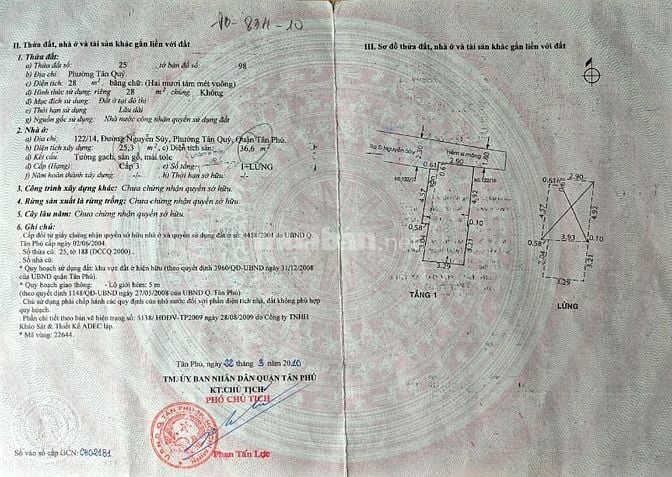 II. Thửa đất, nhà ở và tài sản khác gắn liền với đất
1. Thửa đất:
a) Thửa đất số: 25 , tờ bản đồ số: 98
b) Địa chỉ: Phường Tân Quý
c) Diện tích: 28 m², bằng chữ: (Hai mươi tám mét vuông)
d) Hình thức sử dụng: riêng 28 m², chung Không
đ) Mục đích sử dụng: Đất ở tại đô thị
e) Thời hạn sử dụng: Lâu dài
g) Nguồn gốc sử dụng: Nhà nước công nhận quyền sử dụng đất
2. Nhà ở:
a) Địa chỉ: 122/14, Đường Nguyễn Súy, Phường Tân Quý, Quận Tân Phú.
b) Diện tích xây dựng: 25,3 m², c) Diện tích sàn: 36,6 m²
d) Kết cấu: Tường gạch, sàn gỗ, mái tole
đ) Cấp (Hạng): Cấp 3 e) Số tầng: 1+LỬNG
g) Năm hoàn thành xây dựng: -/- h) Thời hạn sở hữu: -/-
3. Công trình xây dựng khác: Chưa chứng nhận quyền sở hữu.
4. Rừng sản xuất là rừng trồng: Chưa chứng nhận quyền sở hữu.
5. Cây lâu năm: Chưa chứng nhận quyền sở hữu.
6. Ghi chú:
Cấp đổi từ giấy chứng nhận quyền sở hữu nhà ở và quyền sử dụng đất ở số: 4458/2004 do UBND Q.
Tân Phú cấp ngày 02/06/2004.
Số thửa cũ: 25, tờ 188 (DCCQ 2000).
Số nhà cũ:
* Quy hoạch sử dụng đất: khu vực đất ở hiện hữu (theo quyết định 3960/QĐ-UBND ngày 31/12/2008
của UBND quận Tân Phú).
* Quy hoạch giao thông: - Lộ giới hẻm: 5 m
(theo quyết định 1148/QĐ-UBND ngày 27/05/2008 của UBND Q. Tân Phú)
Chủ sử dụng phải chấp hành các quy định của nhà nước đối với phần diện tích nhà, đất không phù hợp
quy hoạch.
Phần chi tiết theo bản vẽ hiện trạng số: 5138/ HĐĐV-TP2009 ngày 28/08/2009 do Công ty TNHH
Khảo Sát & Thiết Kế ADEC lập.
* Mã vùng: 22644.
Tân Phú, ngày 22 tháng 3 năm 2010
TM. ỦY BAN NHÂN DÂN QUẬN TÂN PHÚ
KT.CHỦ TỊCH
PHÓ CHỦ TỊCH
Phan Tấn Lực
Số vào sổ cấp GCN: CH02181
III. Sơ đồ thửa đất, nhà ở và tài sản khác gắn liền với đất
Ra Đ. Nguyễn Súy
Hẻm xi măng
2.30
2.90
2.80
0.61
HS:122/12
HS:122/16
4.57
4.92
0.58
0.10
3.21
3.29
TẦNG 1
2.90
0.61
0.61
4.57
4.92
0.58
3.93
0.10
3.21
3.29
LỬNG